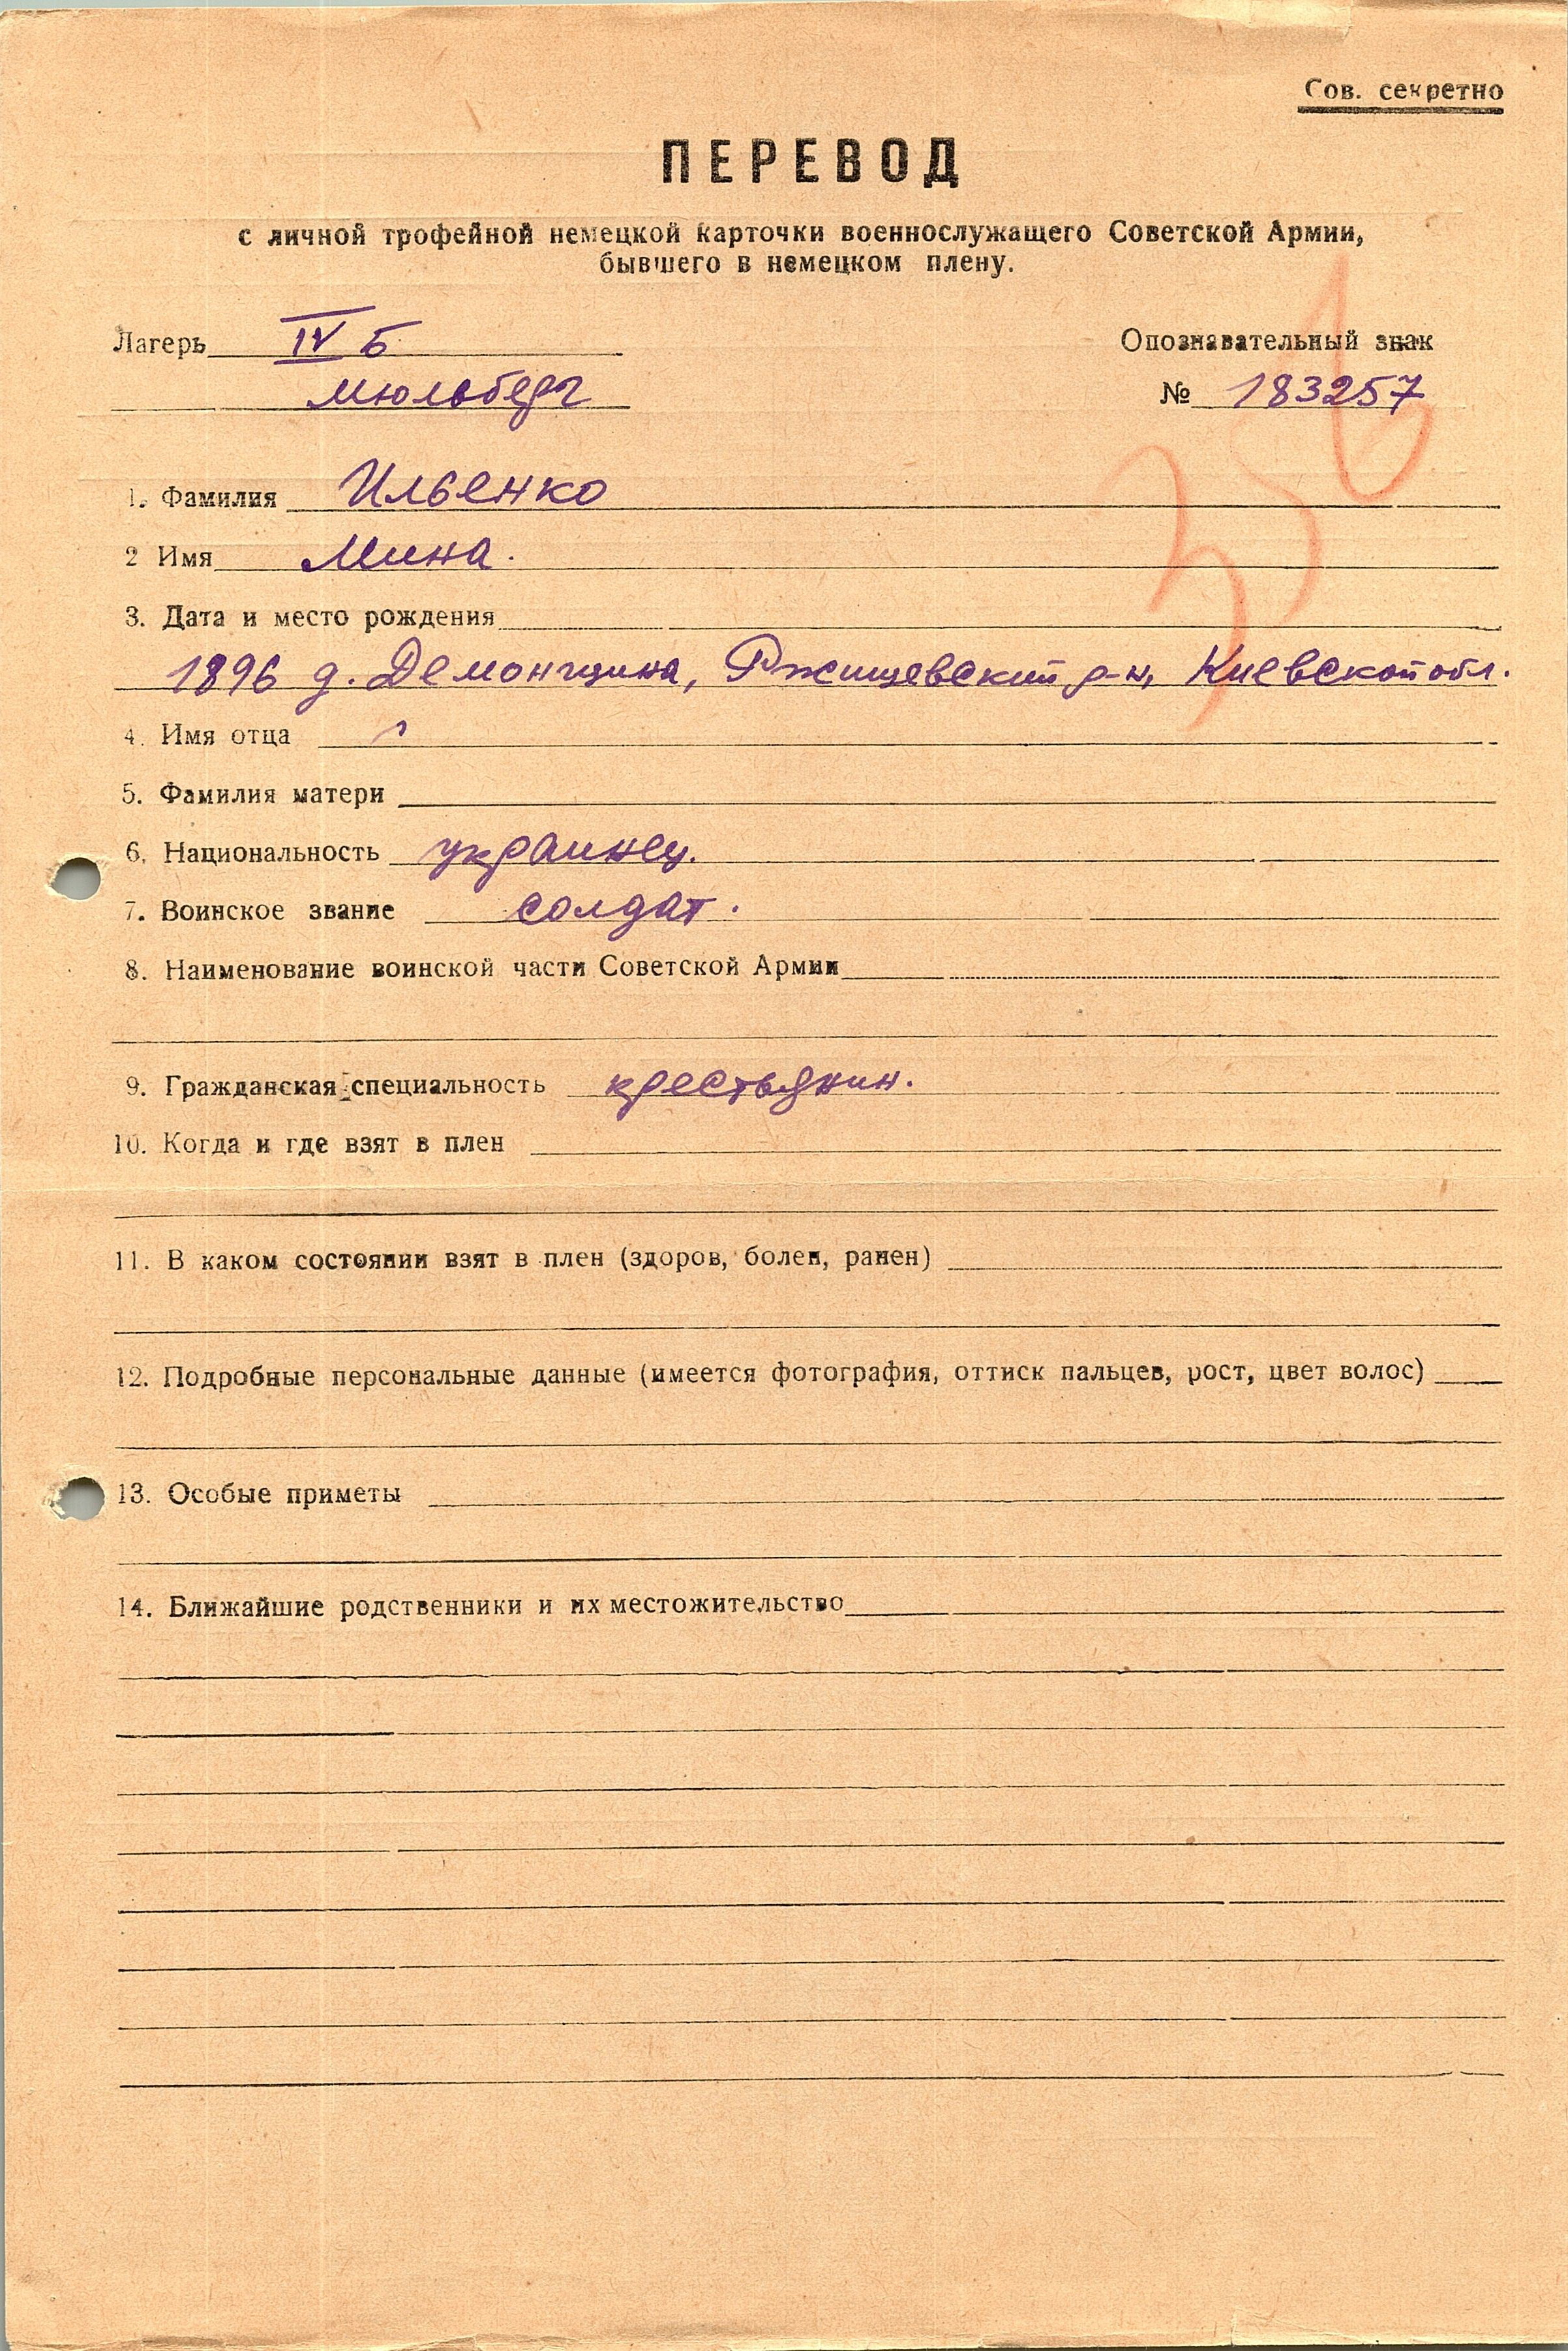 Сов. секретно
ПЕРЕВОД
с личной трофейной немецкой карточки военнослужащего Советской Армии,
бывшего в немецком плену.
Лагерь IV Б
Мюльберг
Опознавательный знак
№ 183257
1. Фамилия Ильенко
2 Имя Мина.
3. Дата и место рождения
1896 д. Демонщина, Ржищевский р-н, Киевской обл.
4. Имя отца
5. Фамилия матери
6. Национальность украинец.
7. Воинское звание солдат.
8. Наименование воинской части Советской Армии
9. Гражданская специальность крестьянин.
10. Когда и где взят в плен
11. В каком состоянии взят в плен (здоров, болен, ранен)
12. Подробные персональные данные (имеется фотография, оттиск пальцев, рост, цвет волос)
13. Особые приметы
14. Ближайшие родственники и их местожительство